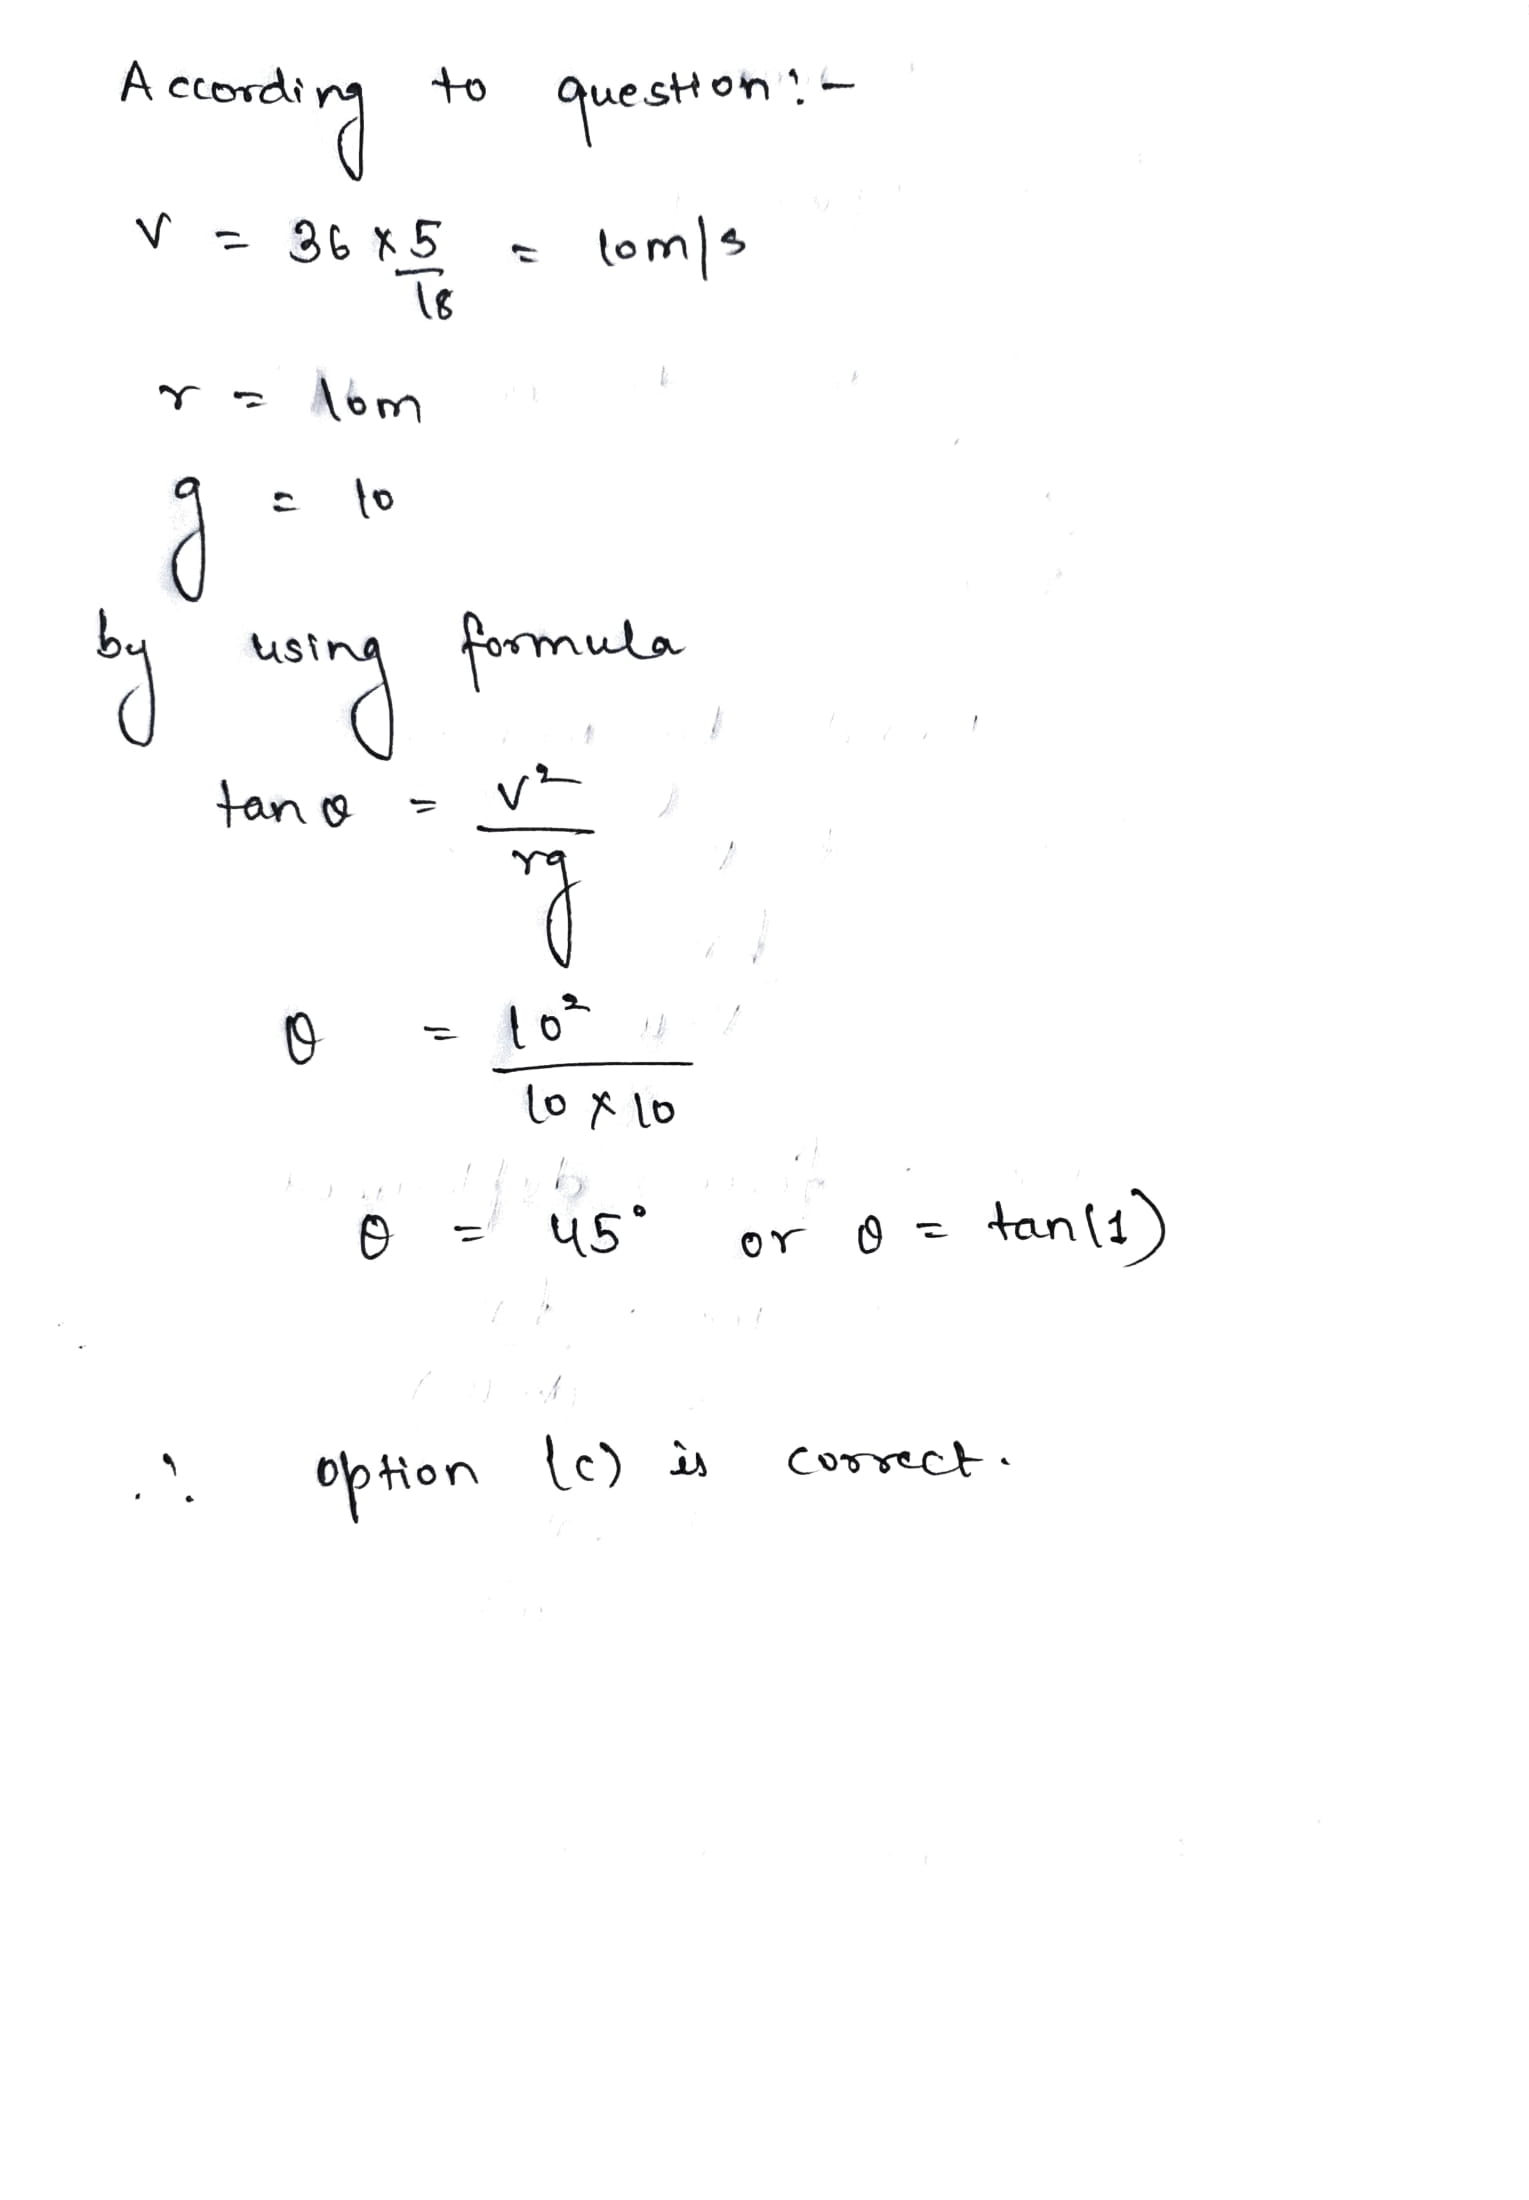 According to question:-
v = 36 × 5/18 = 10m/s
r = 10m
g = 10
by using formula
tan θ = v²/rg
θ = 10²/10 × 10
θ = 45° or θ = tan(1)
∴ option (c) is correct.